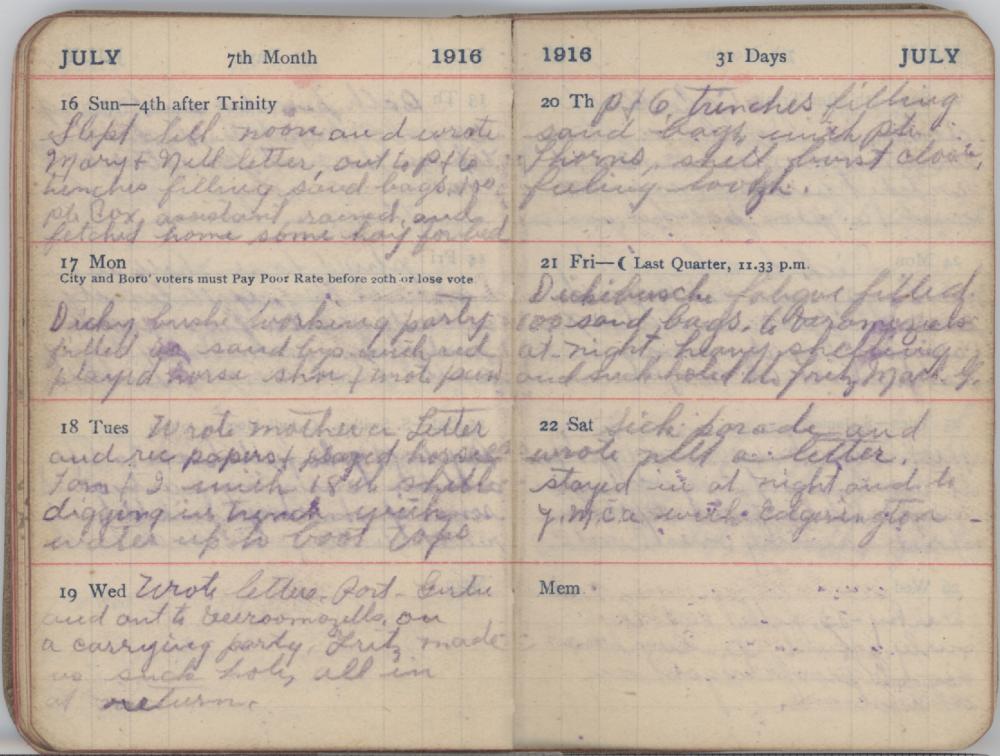 JULY 7th Month 1916
16 Sun—4th after Trinity
Slept till noon and wrote
Mary & Nell letter, out to P & 6
trenches filling sand bags,
pte Cox assistant, rained, and
fetched home some hay for bed
17 Mon
City and Boro' voters must Pay Poor Rate before 20th or lose vote
Dicky bushe working party
filled sand bgs with
played horse shoe & wrote
18 Tues Wrote mother a Letter
and rec papers & played horse
Tom & I with shell
digging in trench with
water up to boot tops
19 Wed Wrote letter Port
and out to
a carrying party, Fritz made
us suck hole, all in
at return.
1916 31 Days JULY
20 Th P & 6, trenches filling
sand bags, with pte
Thorns, shell burst close,
feeling tough.
21 Fri—☾ Last Quarter, 11.33 p.m.
Dickibusche fatigue filled
100 sand bags. to
at night, heavy shelling
and suck hole to Fritz Mach. G.
22 Sat Sick parade and
wrote Nell a letter.
stayed in at night and to
Y.M.C.A with Edgerington
Mem